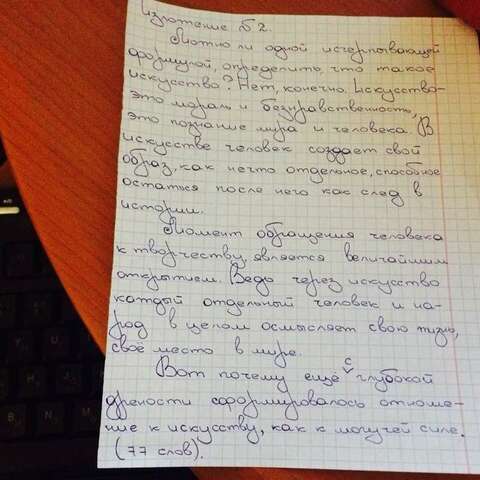 Изложение №2.
Можно ли одной исчерпывающей
формулой, определить, что такое
искусство? Нет, конечно. Искусство-
это мораль и безнравственность,
это познание мира и человека. В
искусстве человек создает свой
образ, как нечто отдельное, способное
остаться после него как след в
истории.
Момент обращения человека
к творчеству, является величайшим
открытием. Ведь через искусство
каждый отдельный человек и на-
род в целом осмысляет свою жизнь,
своё место в мире.
Вот почему ещё с глубокой
древности сформировалось отноше-
ние к искусству, как к могучей силе.
(77 слов).